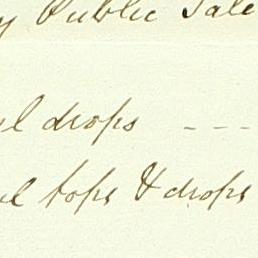 y Public Sale
l drops - - -
l tops & drops